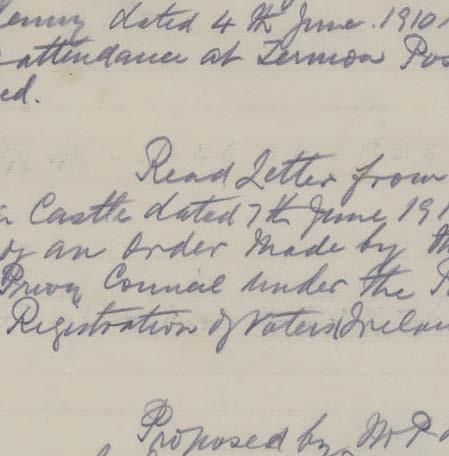 dated 4th June 1910
attendance at Termon Pos
ed.
Read Letter from
Castle dated 7th June 191
of an order made by th
Privy Council under the
Registration of Voters Irelan
Proposed by Mr P